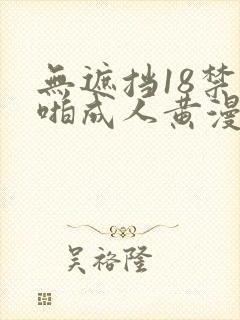 無遮挡18禁
啪成人黄漫
吴裕隆